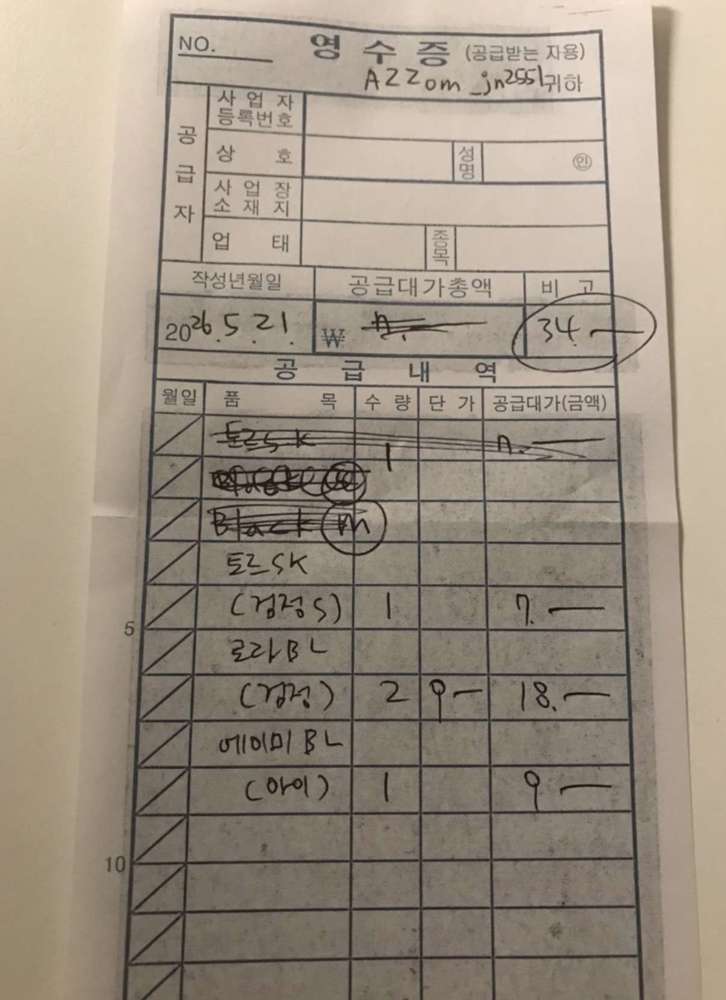 NO. 영수증 (공급받는 자용)
AZZom_jn2551 귀하
공급자
사업자등록번호
상호 성명 ㊞
사업장소재지
업태 종목
작성년월일 공급대가총액 비고
2026.5.21. ₩ 34.—
공급내역
월일 품목 수량 단가 공급대가(금액)
토르SK 1 7.—
Black M
토르SK
5 (검정S) 1 7.—
로라BL
(검정) 2 9— 18.—
에이미BL
(아이) 1 9—
10